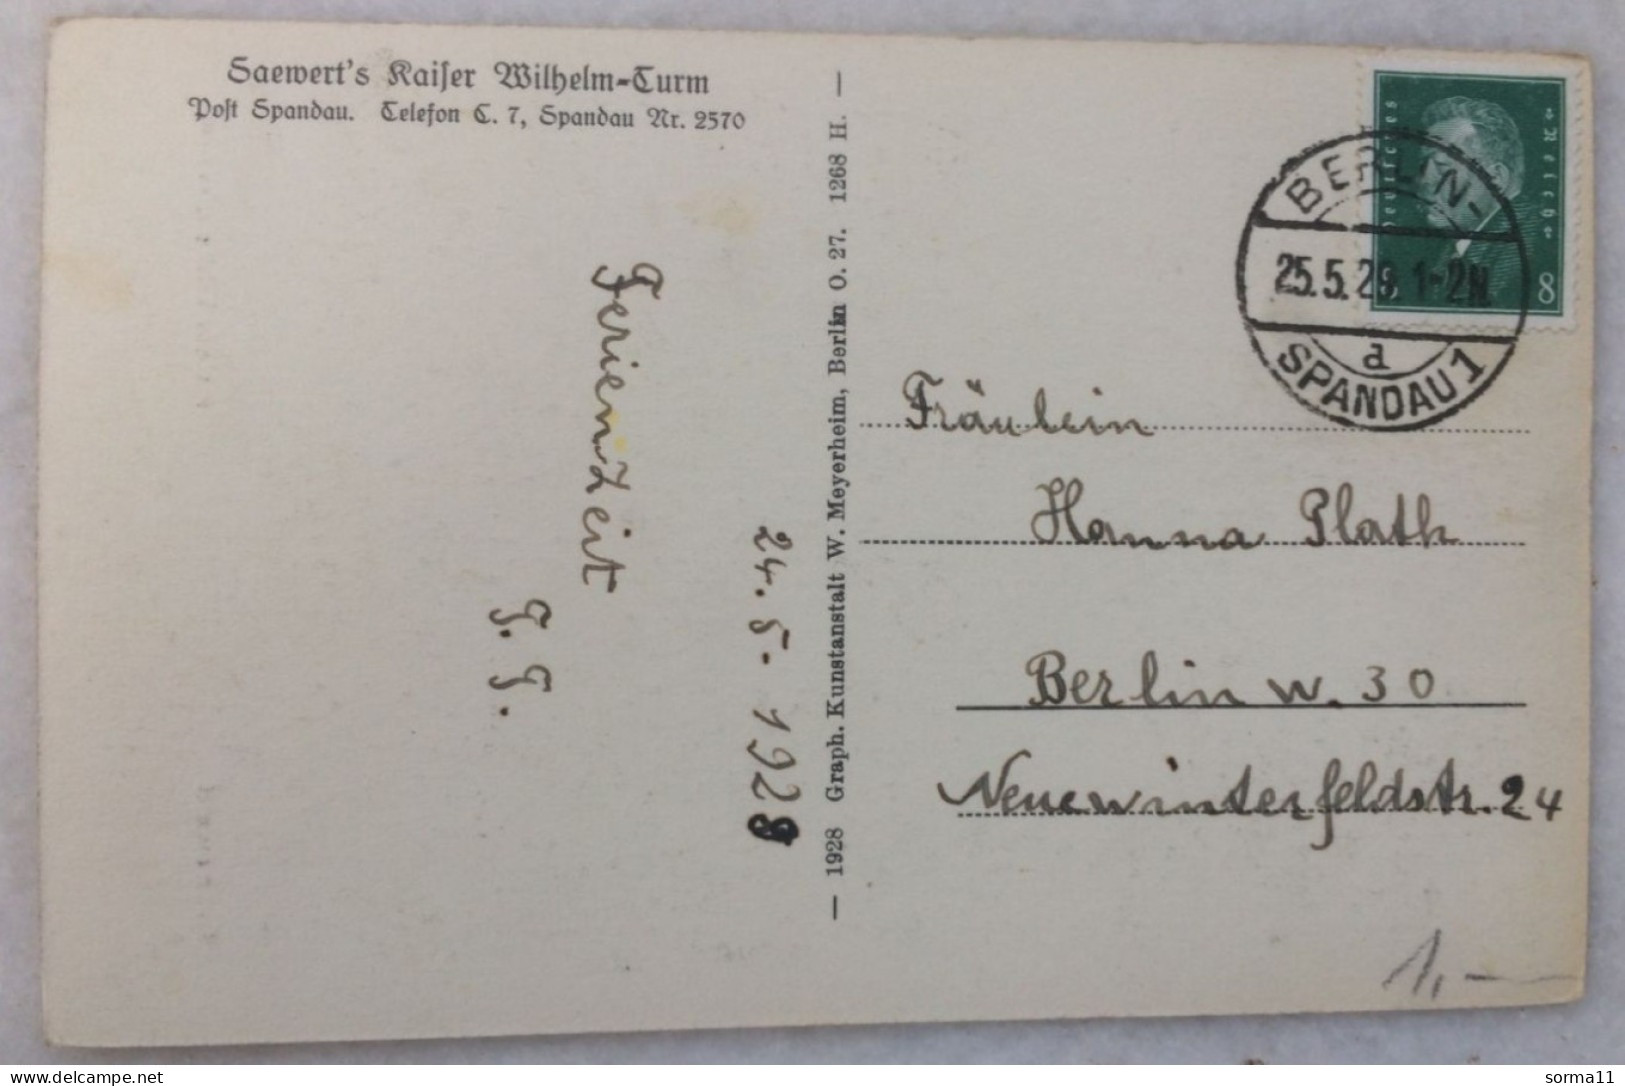 Saewert's Kaiser Wilhelm-Turm
Post Spandau. Telefon C. 7, Spandau Nr. 2570
Ferienzeit
T. T.
24. 5. 1928
— 1928 Graph. Kunstanstalt W. Meyerheim, Berlin O. 27. 1268 H. —
Deutsches
Reich
8
BERLIN-
25.5.28. 1-2N.
a
SPANDAU 1
Fräulein
Hanna Plath
Berlin W. 30
Neuewinterfeldstr. 24
1,—
sorma11